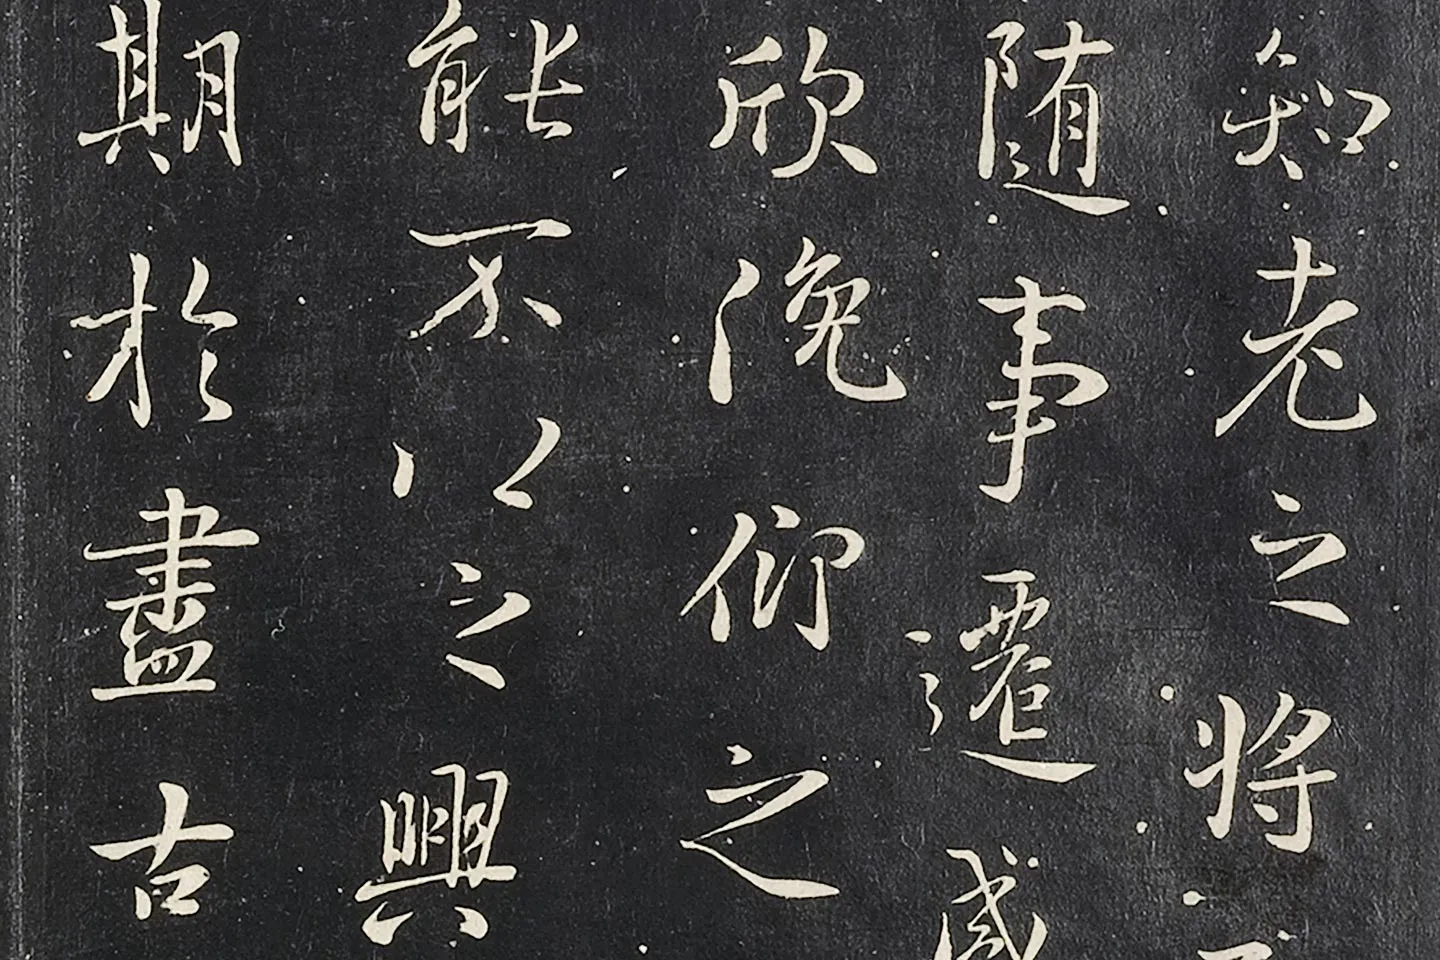 知老之将
随事遷感
欣俛仰之
能不以之興
期於盡古